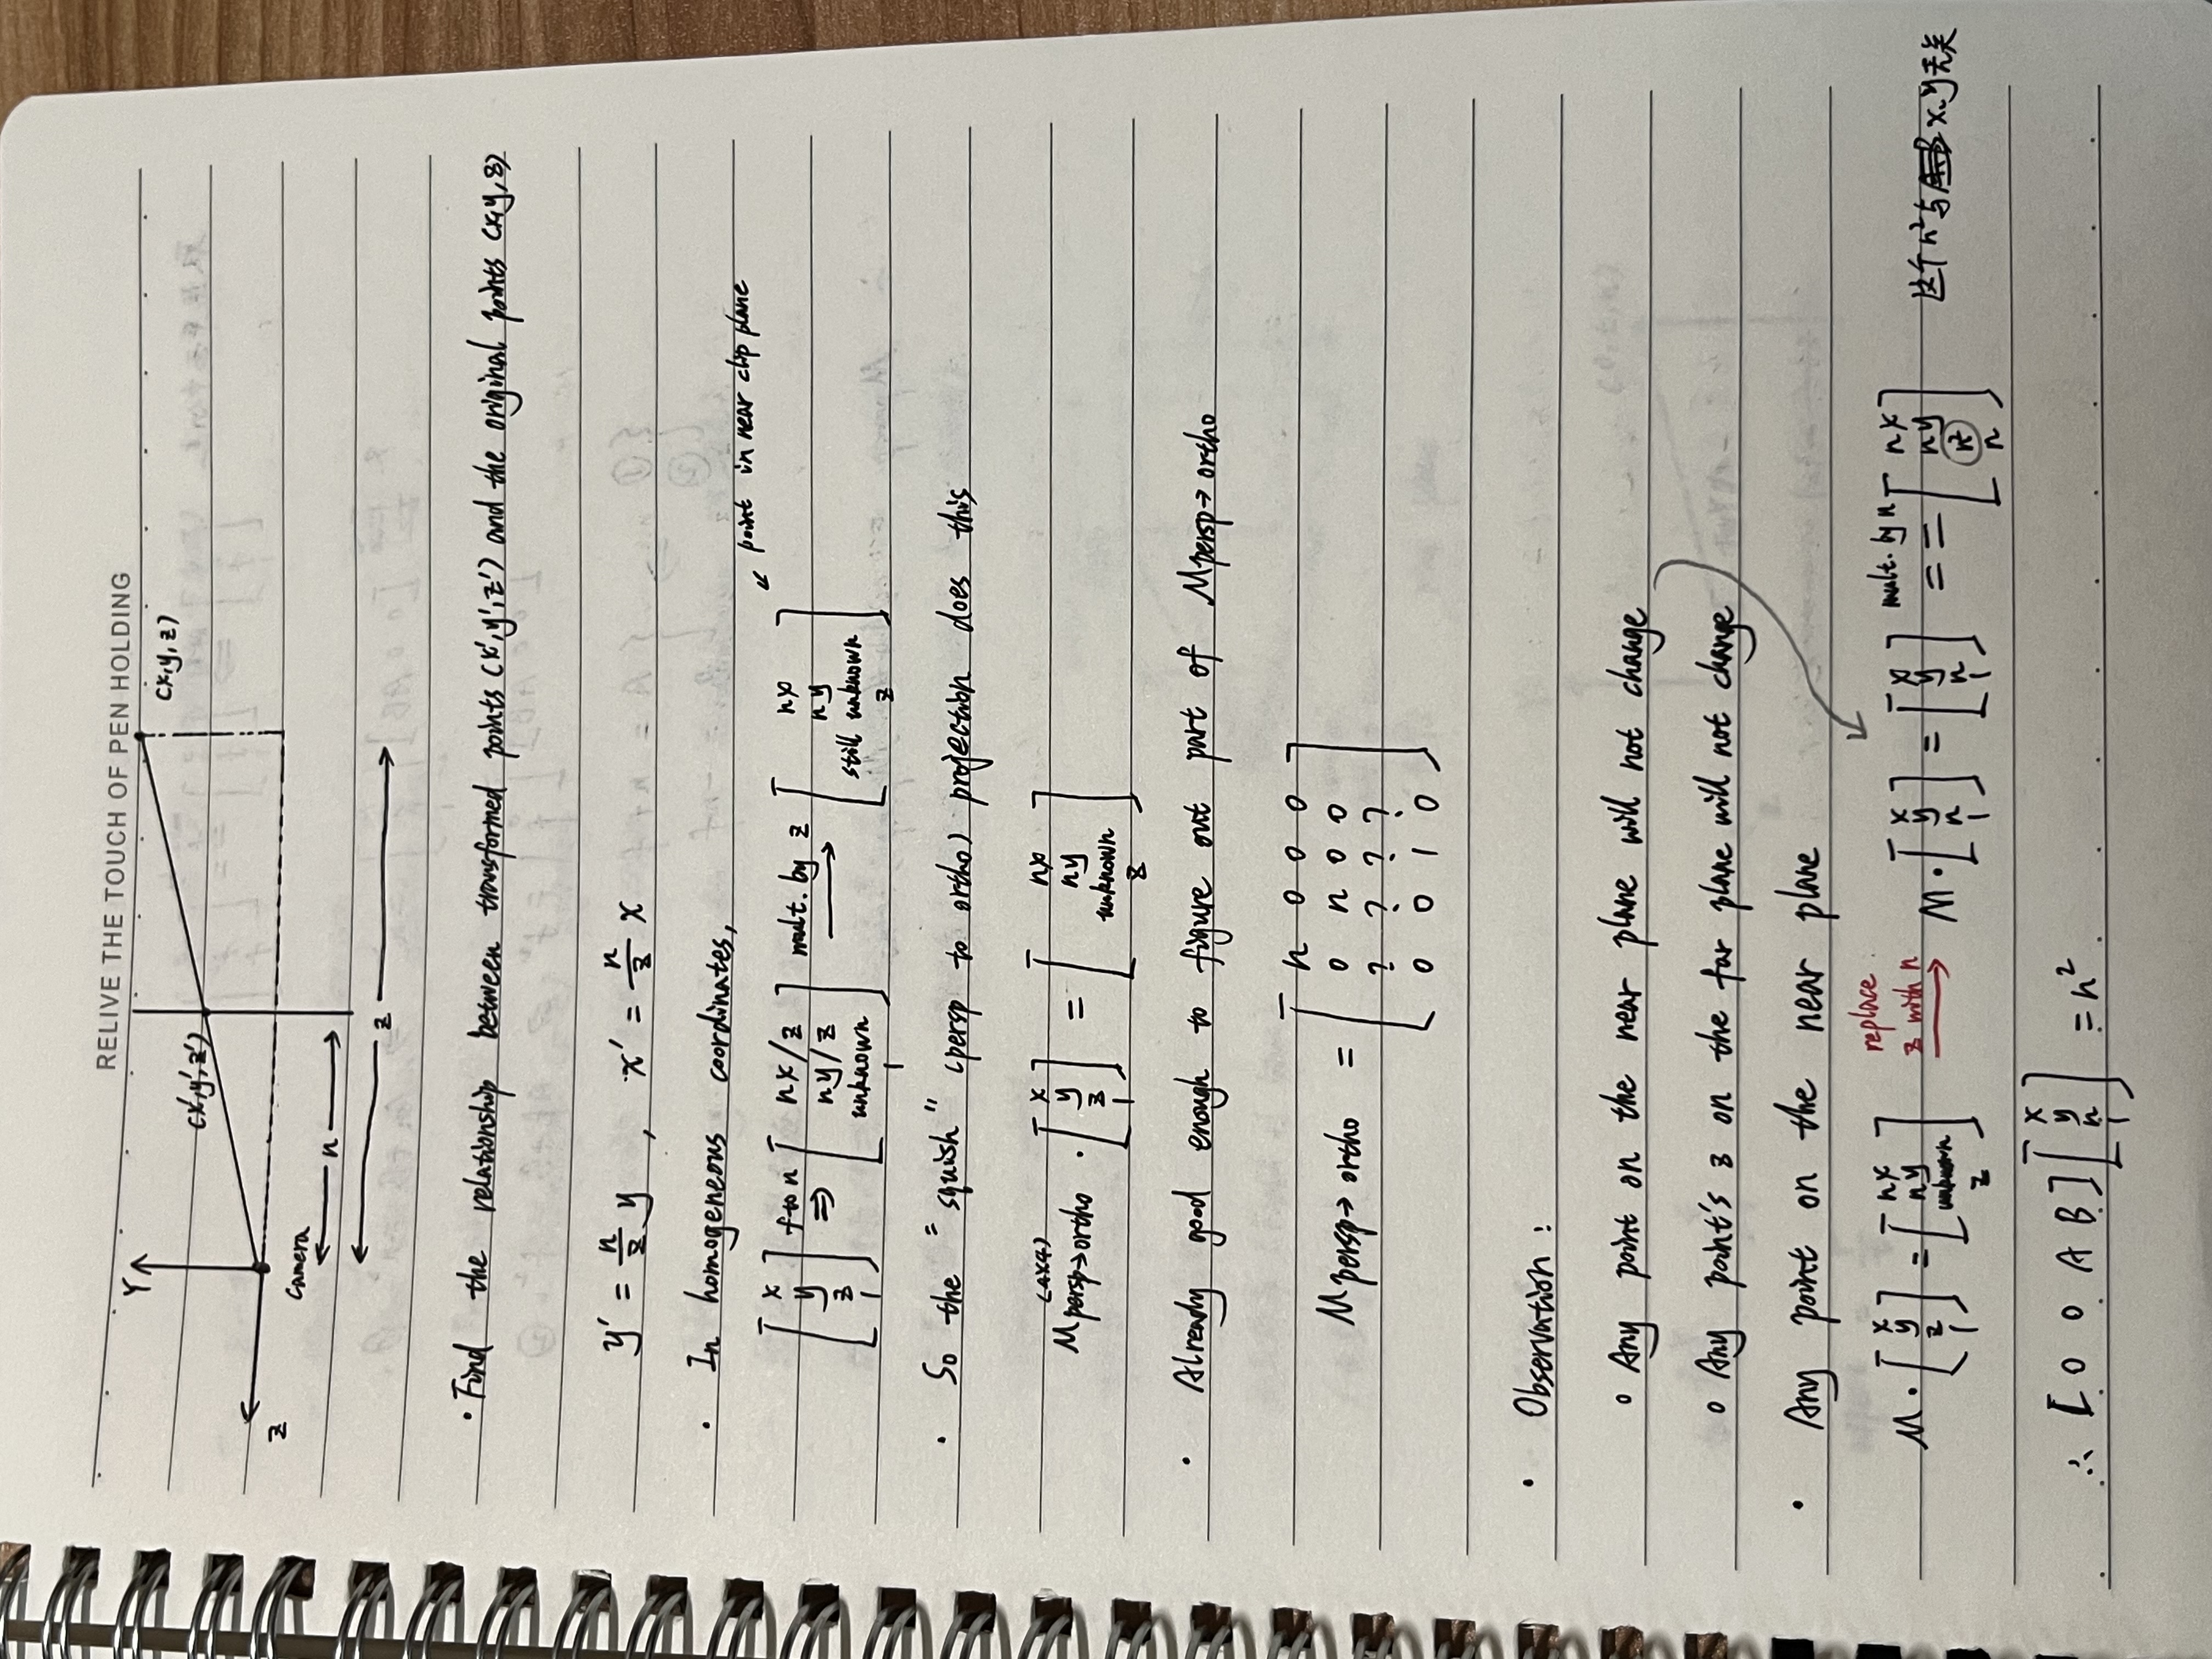 RELIVE THE TOUCH OF PEN HOLDING
Y
(x,y,z)
(x',y',z')
z
Camera
n
z
· Find the relationship between transformed points (x',y',z') and the original points (x,y,z)
y' = n/z y , x' = n/z x
· In homogeneous coordinates,
↙ point in near clip plane
[x y z 1] f to n ⇒ [nx/z ny/z unknown 1] mult. by z → [nx ny still unknown z]
· So the "squish" (persp to ortho) projection does this
(4x4)
Mpersp→ortho · [x y z 1] = [nx ny unknown z]
· Already good enough to figure out part of Mpersp→ortho
Mpersp→ortho = [n 0 0 0
0 n 0 0
? ? ? ?
0 0 1 0]
· Observation:
o Any point on the near plane will not change
o Any point's z on the far plane will not change
· Any point on the near plane
M · [x y z 1] = [nx ny unknown z] replace z with n → M · [x y n 1] = [x y n 1] mult. by n == [nx ny n² n] 这个n²与x、y无关
∴ [0 0 A B] [x y n 1] = n²